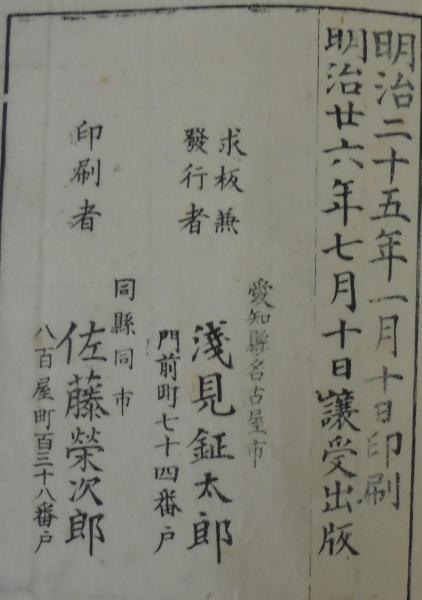 明治二十五年一月十日印刷
明治廿六年七月十日讓受出版
求板兼
發行者
愛知縣名古屋市
淺見鉦太郎
門前町七十四番戸
印刷者
同縣同市
佐藤榮次郎
八百屋町百三十八番戸